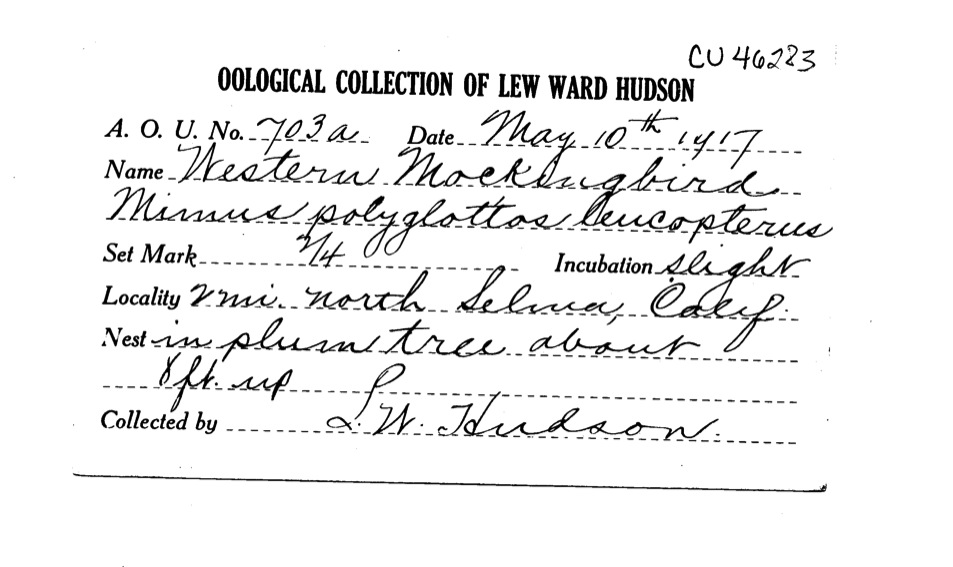 CU 46223
OOLOGICAL COLLECTION OF LEW WARD HUDSON
A. O. U. No. 703a Date May 10th 1917
Name Western Mockingbird
Mimus polyglottos leucopterus
Set Mark 2/4 Incubation slight
Locality 2 mi. north Selma, Calif.
Nest in plum tree about
8 ft. up
Collected by L. W. Hudson.